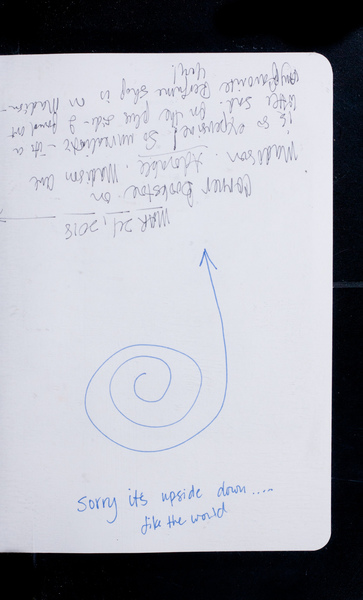 MAR 24, 2018
Corner Bookstore on
Madison. Adorable. Madison Ave
is so expensive! So unrealistic - it's a
little sad. On the plus side - I found out
my favorite perfume shop is in Madison -
Yay!
Sorry its upside down.....
like the world